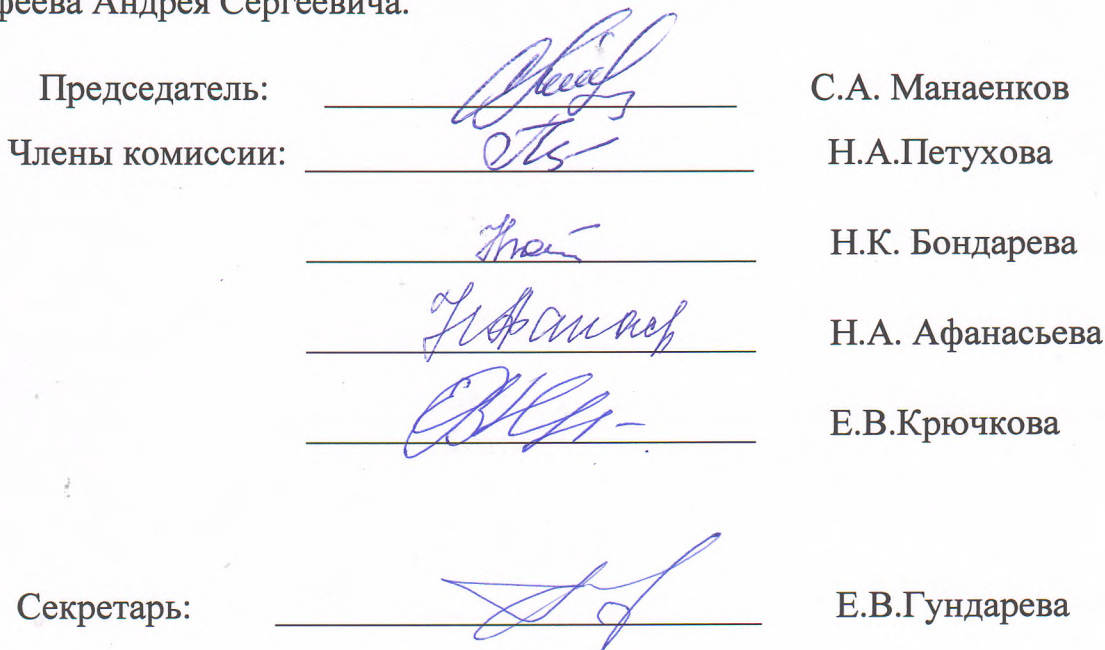 феева Андрея Сергеевича.
Председатель: С.А. Манаенков
Члены комиссии: Н.А.Петухова
Н.К. Бондарева
Н.А. Афанасьева
Е.В.Крючкова
Секретарь: Е.В.Гундарева